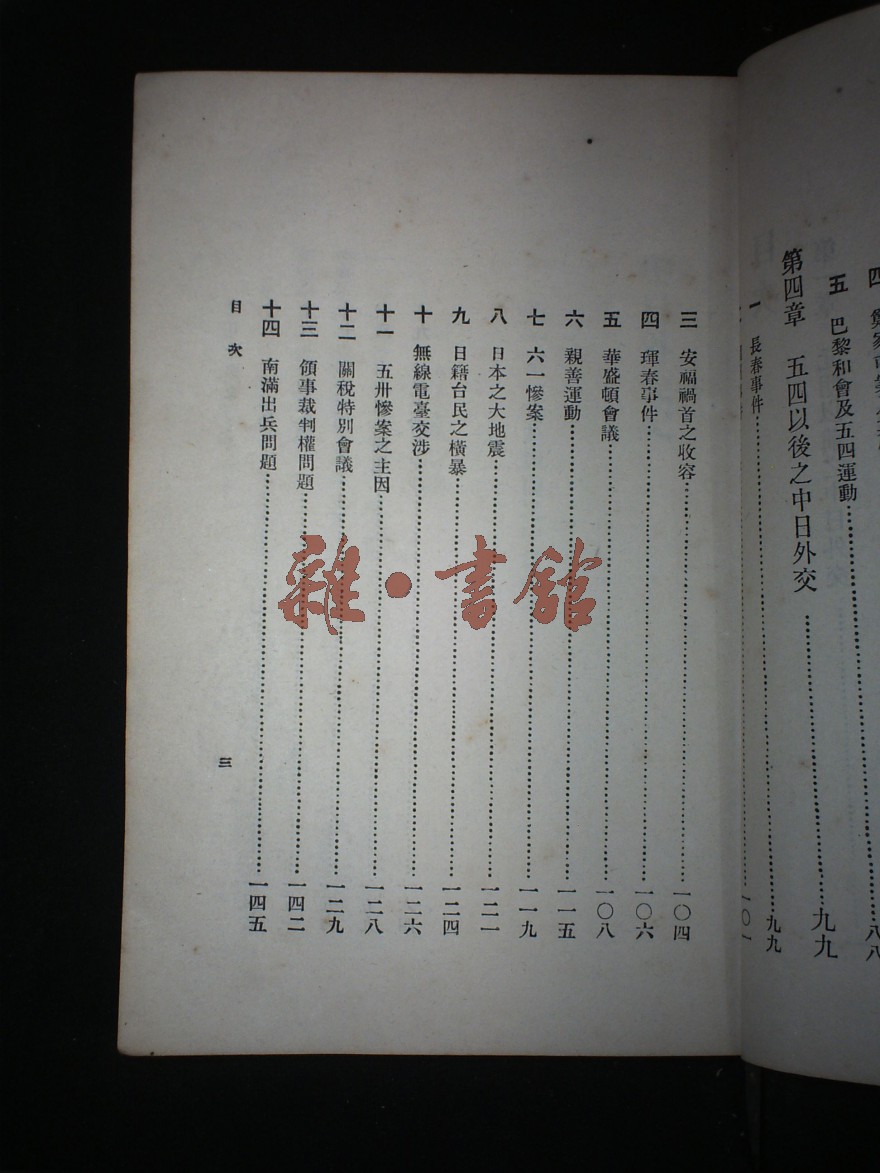 五 巴黎和會及五四運動……八八
第四章 五四以後之中日外交……九九
一 長春事件……九九
三 安福禍首之收容……一〇四
四 琿春事件……一〇六
五 華盛頓會議……一〇八
六 親善運動……一一五
七 六一慘案……一一九
八 日本之大地震……一二一
九 日籍台民之橫暴……一二四
十 無線電臺交涉……一二六
十一 五卅慘案之主因……一二八
十二 關稅特別會議……一二九
十三 領事裁判權問題……一四二
十四 南滿出兵問題……一四五
目次 三
雜·書館